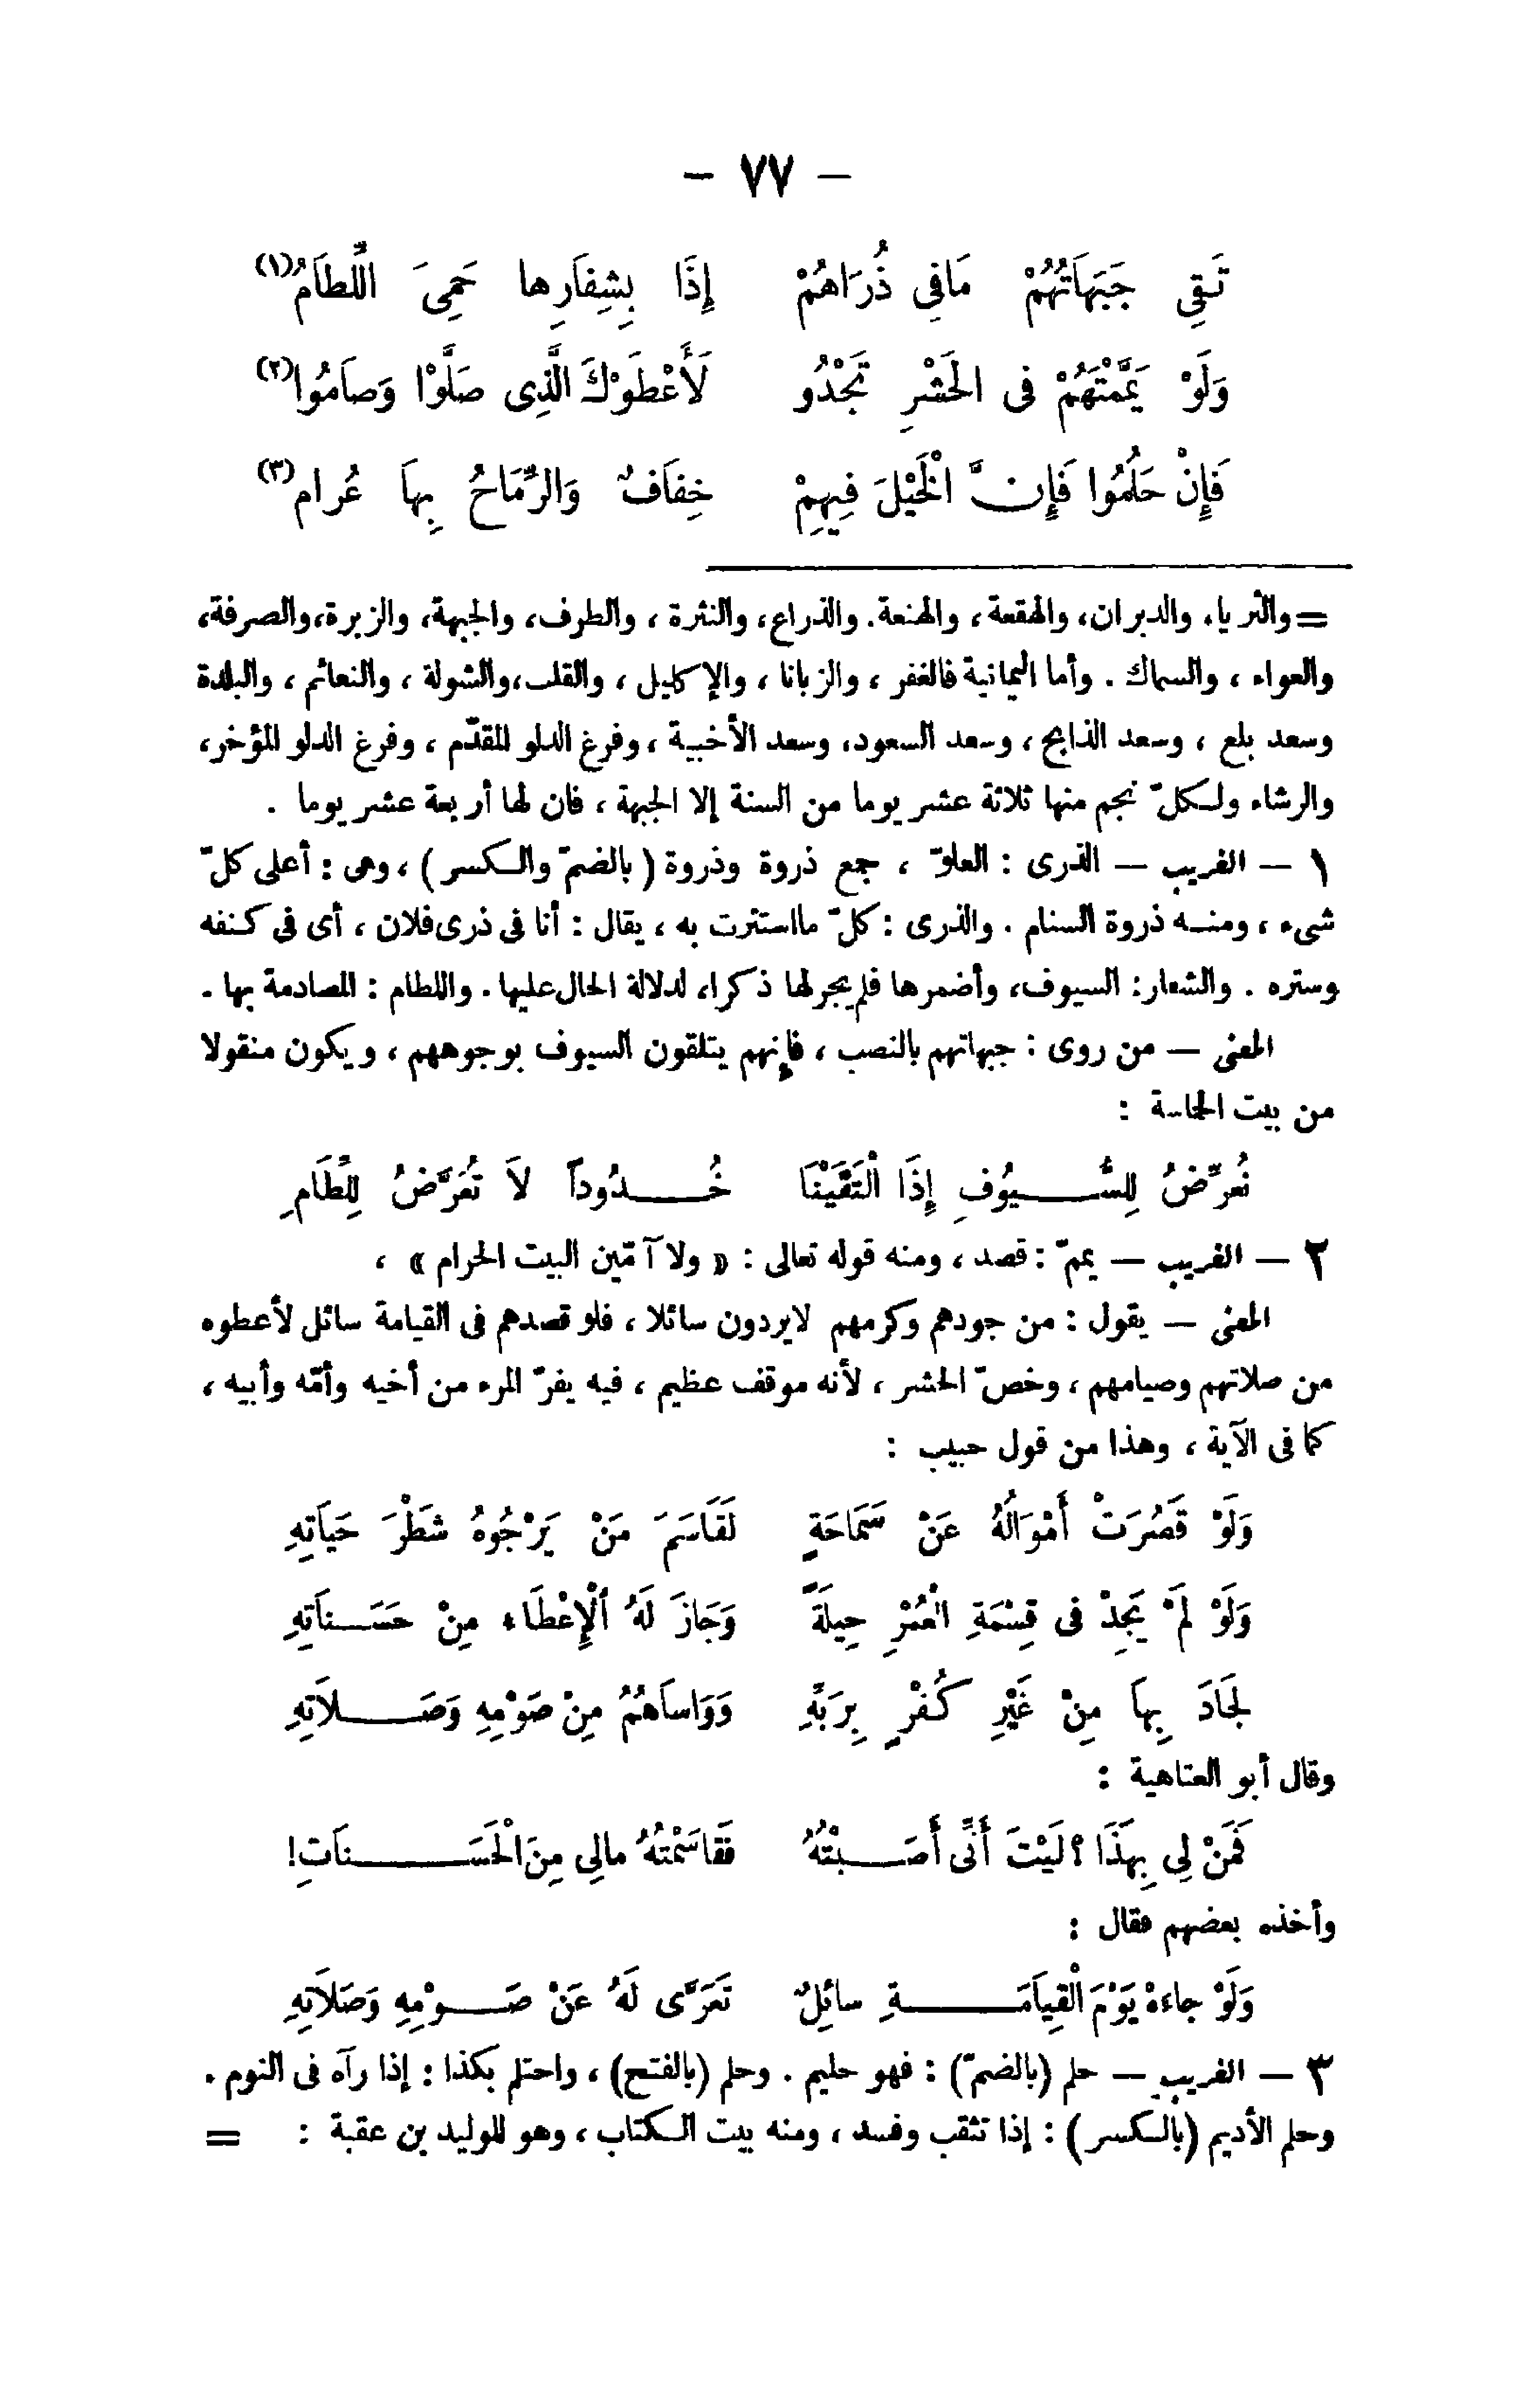 – ٧٧ –
تَقِي جَبَهَاتُهُمْ مَا فِي ذُرَاهُمْ إِذَا بِشِفَارِها حَمِيَ اللِّطَامُ(١)
وَلَوْ يَمَّمْتَهُمْ فى الحَشْرِ تَجْدُو لَأَعْطَوْكَ الَّذِى صَلَّوْا وَصامُوا(٢)
فَإِنْ حَلُمُوا فَإِنَّ الْخَيْلَ فِيهِمْ خِفَافٌ وَالرِّمَاحُ بِهاَ عُرام(٣)
=والثريا، والدبران، والهقعة، والهنعة. والذراع، والنثرة، والطرف، والجبهة، والزبرة، والصرفة،
والعواء، والسماك. وأما اليمانية فالغفر، والزبانا، والإكليل، والقلب، والشولة، والنعائم، والبلدة
وسعد بلع، وسعد الذابح، وسعد السعود، وسعد الأخبية، وفرغ الدلو المقدّم، وفرغ الدلو المؤخر،
والرشاء ولكلّ نجم منها ثلاثة عشر يوما من السنة إلا الجبهة، فان لها أربعة عشر يوما .
١ – الغريب – الذرى : العلوّ ، جمع ذروة وذروة ( بالضمّ والكسر ) ، وهى : أعلى كلّ
شىء ، ومنه ذروة السنام . والذرى : كلّ ما استترت به ، يقال : أنا فى ذرى فلان ، أى فى كنفه
وستره . والشفار: السيوف، وأضمرها فلم يجر لها ذكرا، لدلالة الحال عليها. واللطام : المصادمة بها .
المعنى – من روى : جبهاتهم بالنصب ، فإنهم يتلقون السيوف بوجوههم ، ويكون منقولا
من بيت الحماسة :
نُعَرِّضُ لِلسُّيُوفِ إِذَا الْتَقَيْنَا خُدُوداً لاَ تُعَرَّضُ لِلِّطَامِ
٢ – الغريب – يممّ : قصد ، ومنه قوله تعالى : « ولا آمّين البيت الحرام » ،
المعنى – يقول : من جودهم وكرمهم لايردون سائلا ، فلو قصدهم فى القيامة سائل لأعطوه
من صلاتهم وصيامهم ، وخصّ الحشر ، لأنه موقف عظيم ، فيه يفرّ المرء من أخيه وأمّه وأبيه ،
كما فى الآية ، وهذا من قول حبيب :
وَلَوْ قَصُرَتْ أَمْوَالُهُ عَنْ سَمَاحَةٍ لَقَاسَمَ مَنْ يَرْجُوهُ شَطْرَ حَيَاتِهِ
وَلَوْ لَمْ يَجِدْ فى قِسْمَةِ الْعُمْرِ حِيلَةً وَجَازَ لَهُ الْإِعْطَاء مِنْ حَسَناَتِهِ
لَجَادَ بِهاَ مِنْ غَيْرِ كُفْرٍ بِرَبِّهِ وَوَاساَهُمُ مِنْ صَوْمِهِ وَصَلاَتِهِ
وقال أبو العتاهية :
فَمَنْ لِى بِهَذَا؟ لَيْتَ أَنِّى أَصَبْتُهُ فَقَاسَمْتُهُ مالِى مِنَ الْحَسَناَتِ!
وأخذه بعضهم فقال :
وَلَوْ جاءهْ يَوْمَ الْقِياَمَةِ سائِلٌ تَعَرَّى لَهُ عَنْ صَوْمِهِ وَصَلاَتِهِ
٣ – الغريب – حلم (بالضمّ) : فهو حليم . وحلم (بالفتح) ، واحتلم بكذا : إذا رآه فى النوم .
وحلم الأديم (بالكسر) : إذا تثقب وفسد ، ومنه بيت الكتاب ، وهو للوليد بن عقبة : =